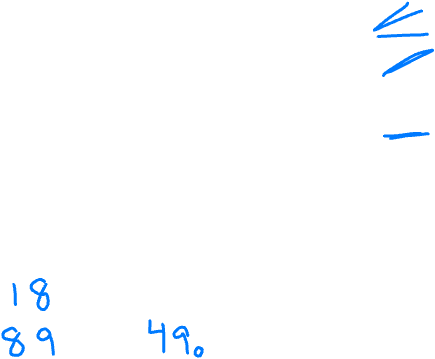 18
89 49.